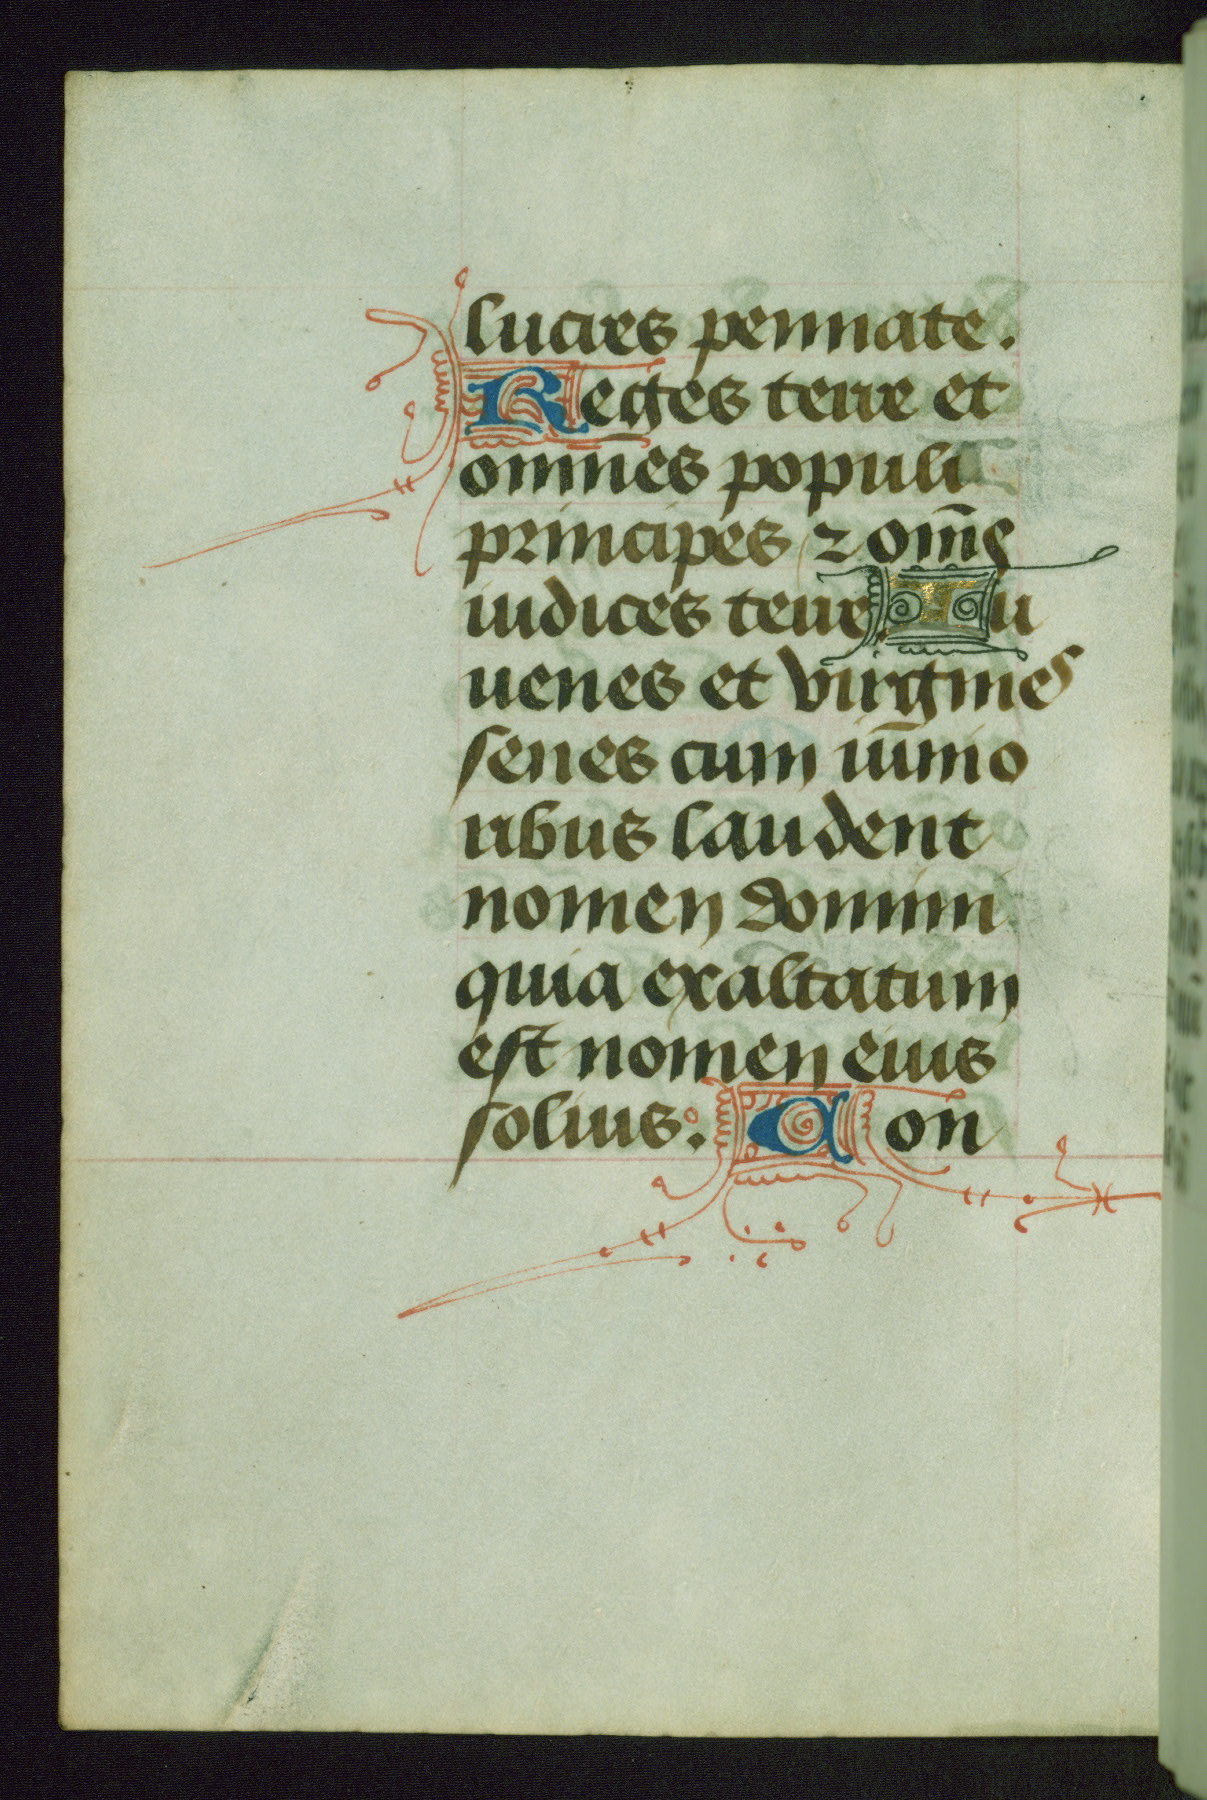 lucres pennate.
Reges terre et
omnes populi
principes ⁊ om̄s
iudices terre Iu
uenes et virgines
senes cum iūnio
ribus laudent
nomen domini
quia exaltatum
est nomen eius
solius: Con